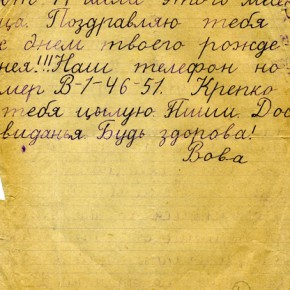 этого
ца. Поздравляю тебя
с днем твоего рожде-
нея!!! Наш телефон но
мер В-1-46-51. Крепко
тебя цылую. Пиши. Дос
виданья. Будь здорова!
Вова